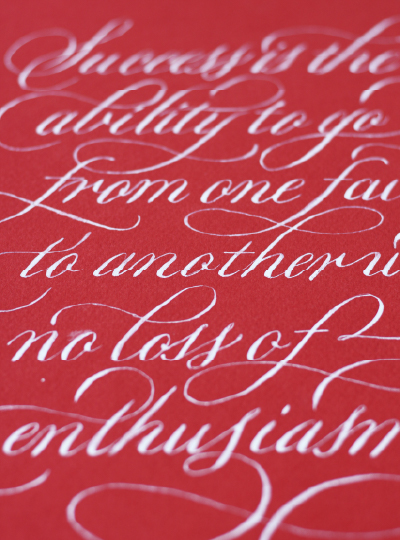 Success is the
ability to go
from one fai
to another w
no loss of
enthusiasm